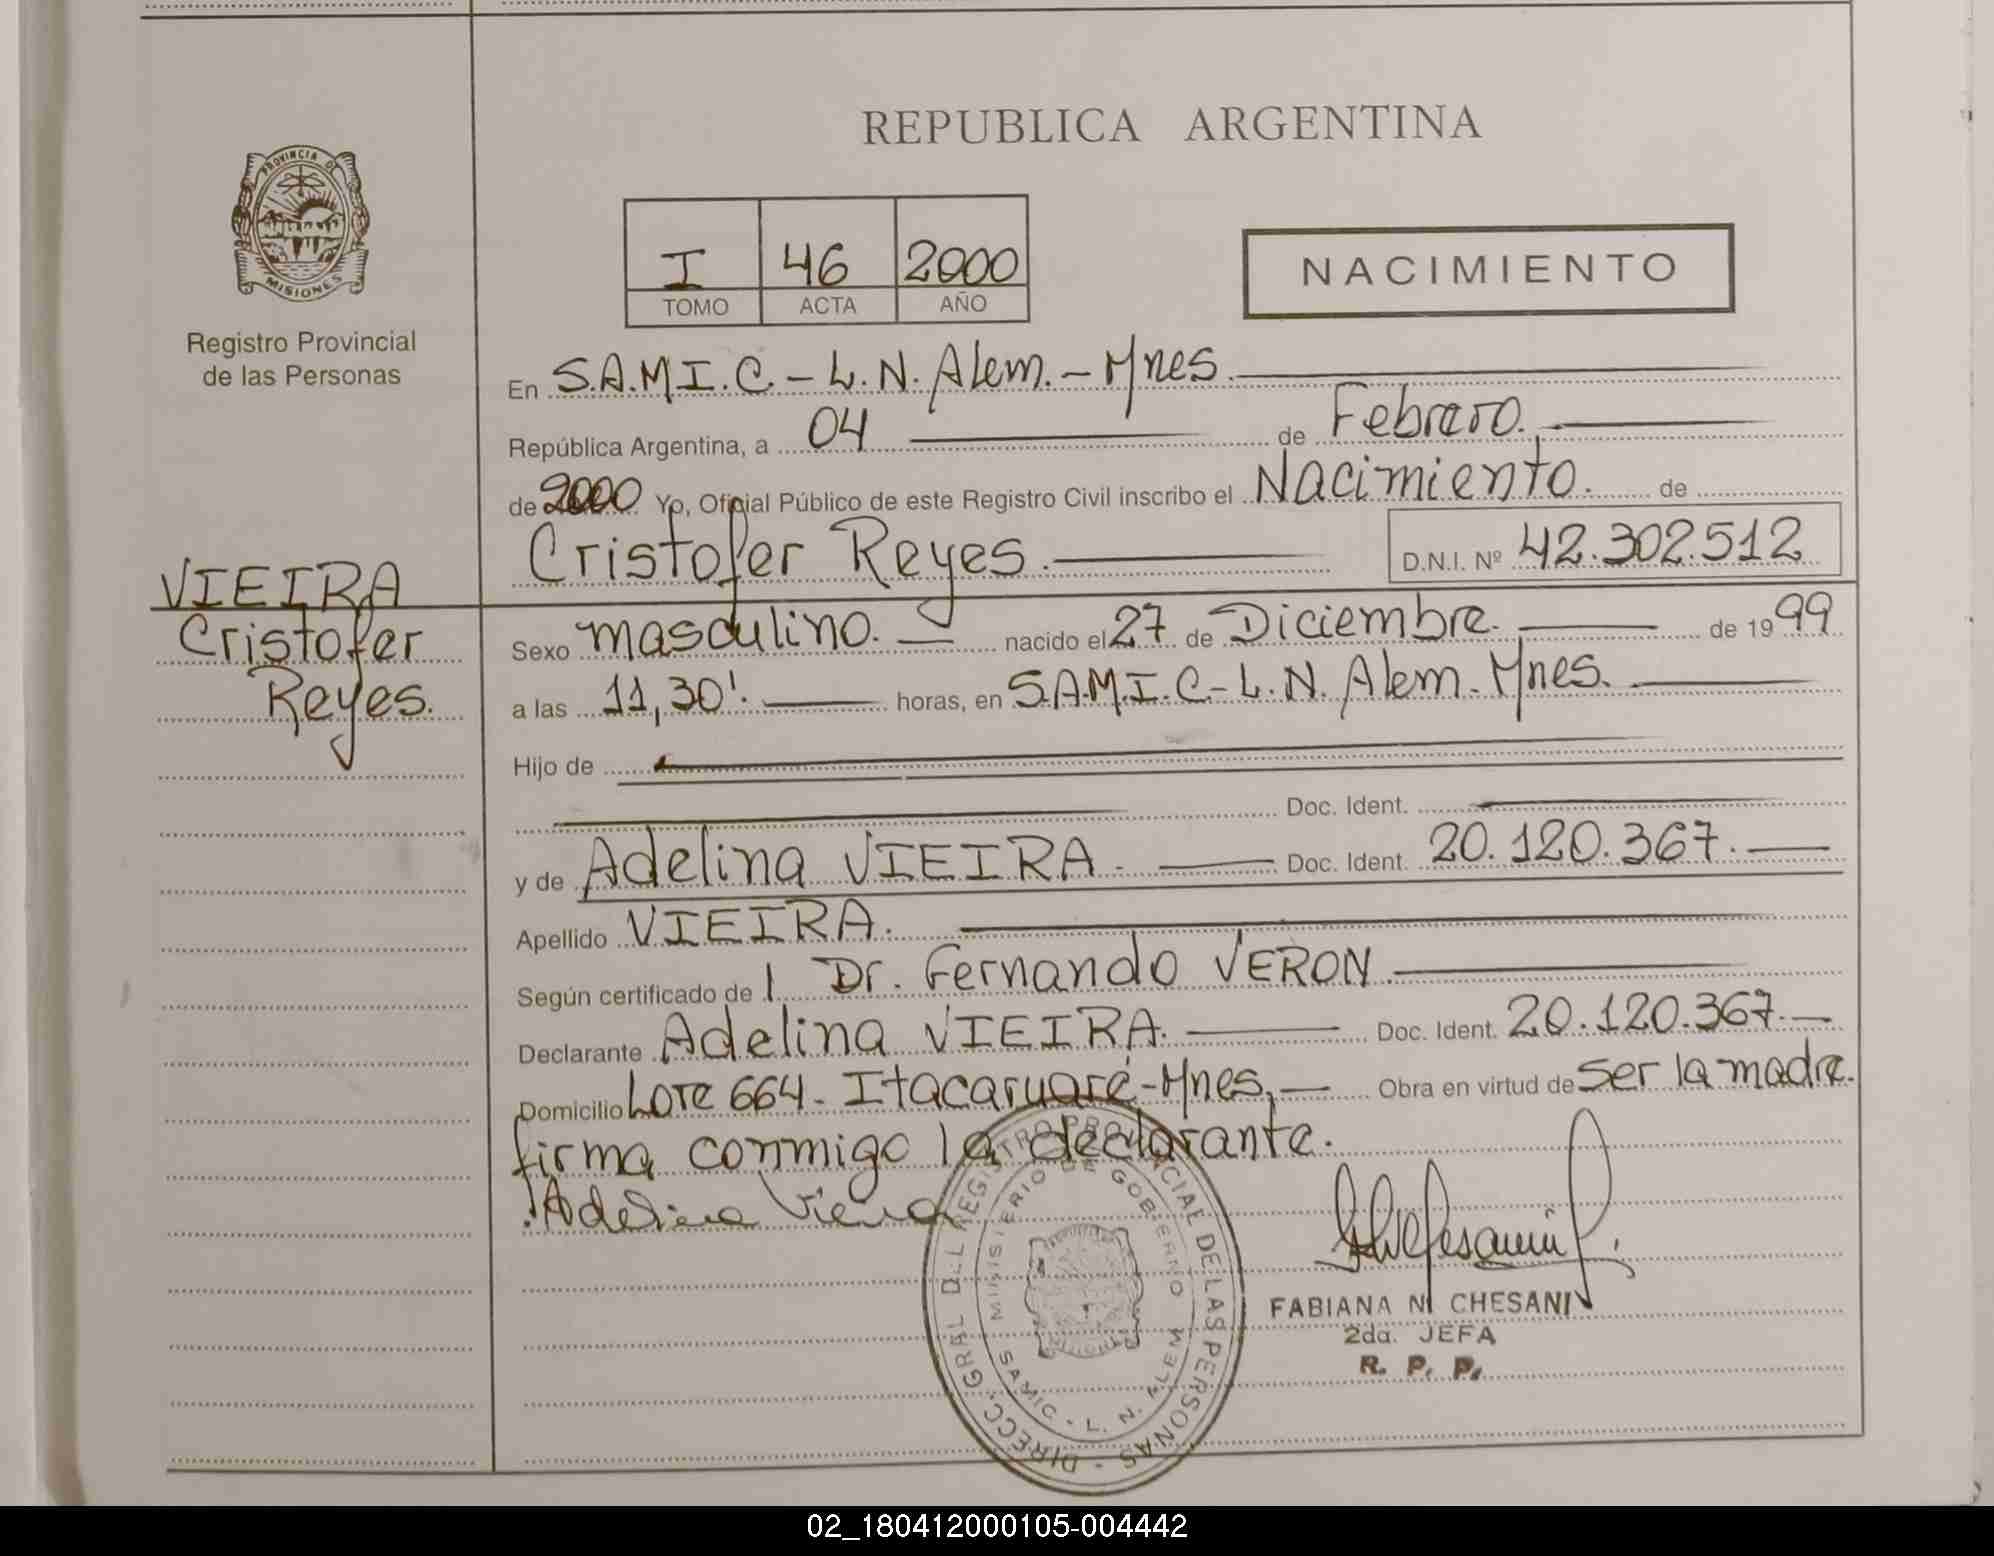 REPUBLICA ARGENTINA
PROVINCIA DE
MISIONES
Registro Provincial
de las Personas
I 46 2000
TOMO ACTA AÑO
NACIMIENTO
En S.A.M.I.C. - L.N. Alem. - Mnes.
República Argentina, a 04 de Febrero.
de 2000 Yo, Oficial Público de este Registro Civil inscribo el Nacimiento. de
Cristofer Reyes. D.N.I. Nº 42.302.512
VIEIRA
Cristofer
Reyes.
Sexo masculino. nacido el 27 de Diciembre. de 1999
a las 11,30'. horas, en S.A.M.I.C - L.N. Alem. Mnes.
Hijo de
Doc. Ident.
y de Adelina VIEIRA. Doc. Ident. 20.120.367.
Apellido VIEIRA.
Según certificado de l Dr. Fernando VERON.
Declarante Adelina VIEIRA. Doc. Ident. 20.120.367.
Domicilio Lote 664 - Itacaruaré - Mnes. Obra en virtud de ser la madre.
firma conmigo la declarante.
Adelina Vieira
DIRECC. GRAL DEL REGISTRO PROVINCIAL DE LAS PERSONAS -
MINISTERIO DE GOBIERNO
SAMIC - L. N. ALEM
FABIANA N. CHESANI
2da. JEFA
R. P. P.
02_180412000105-004442